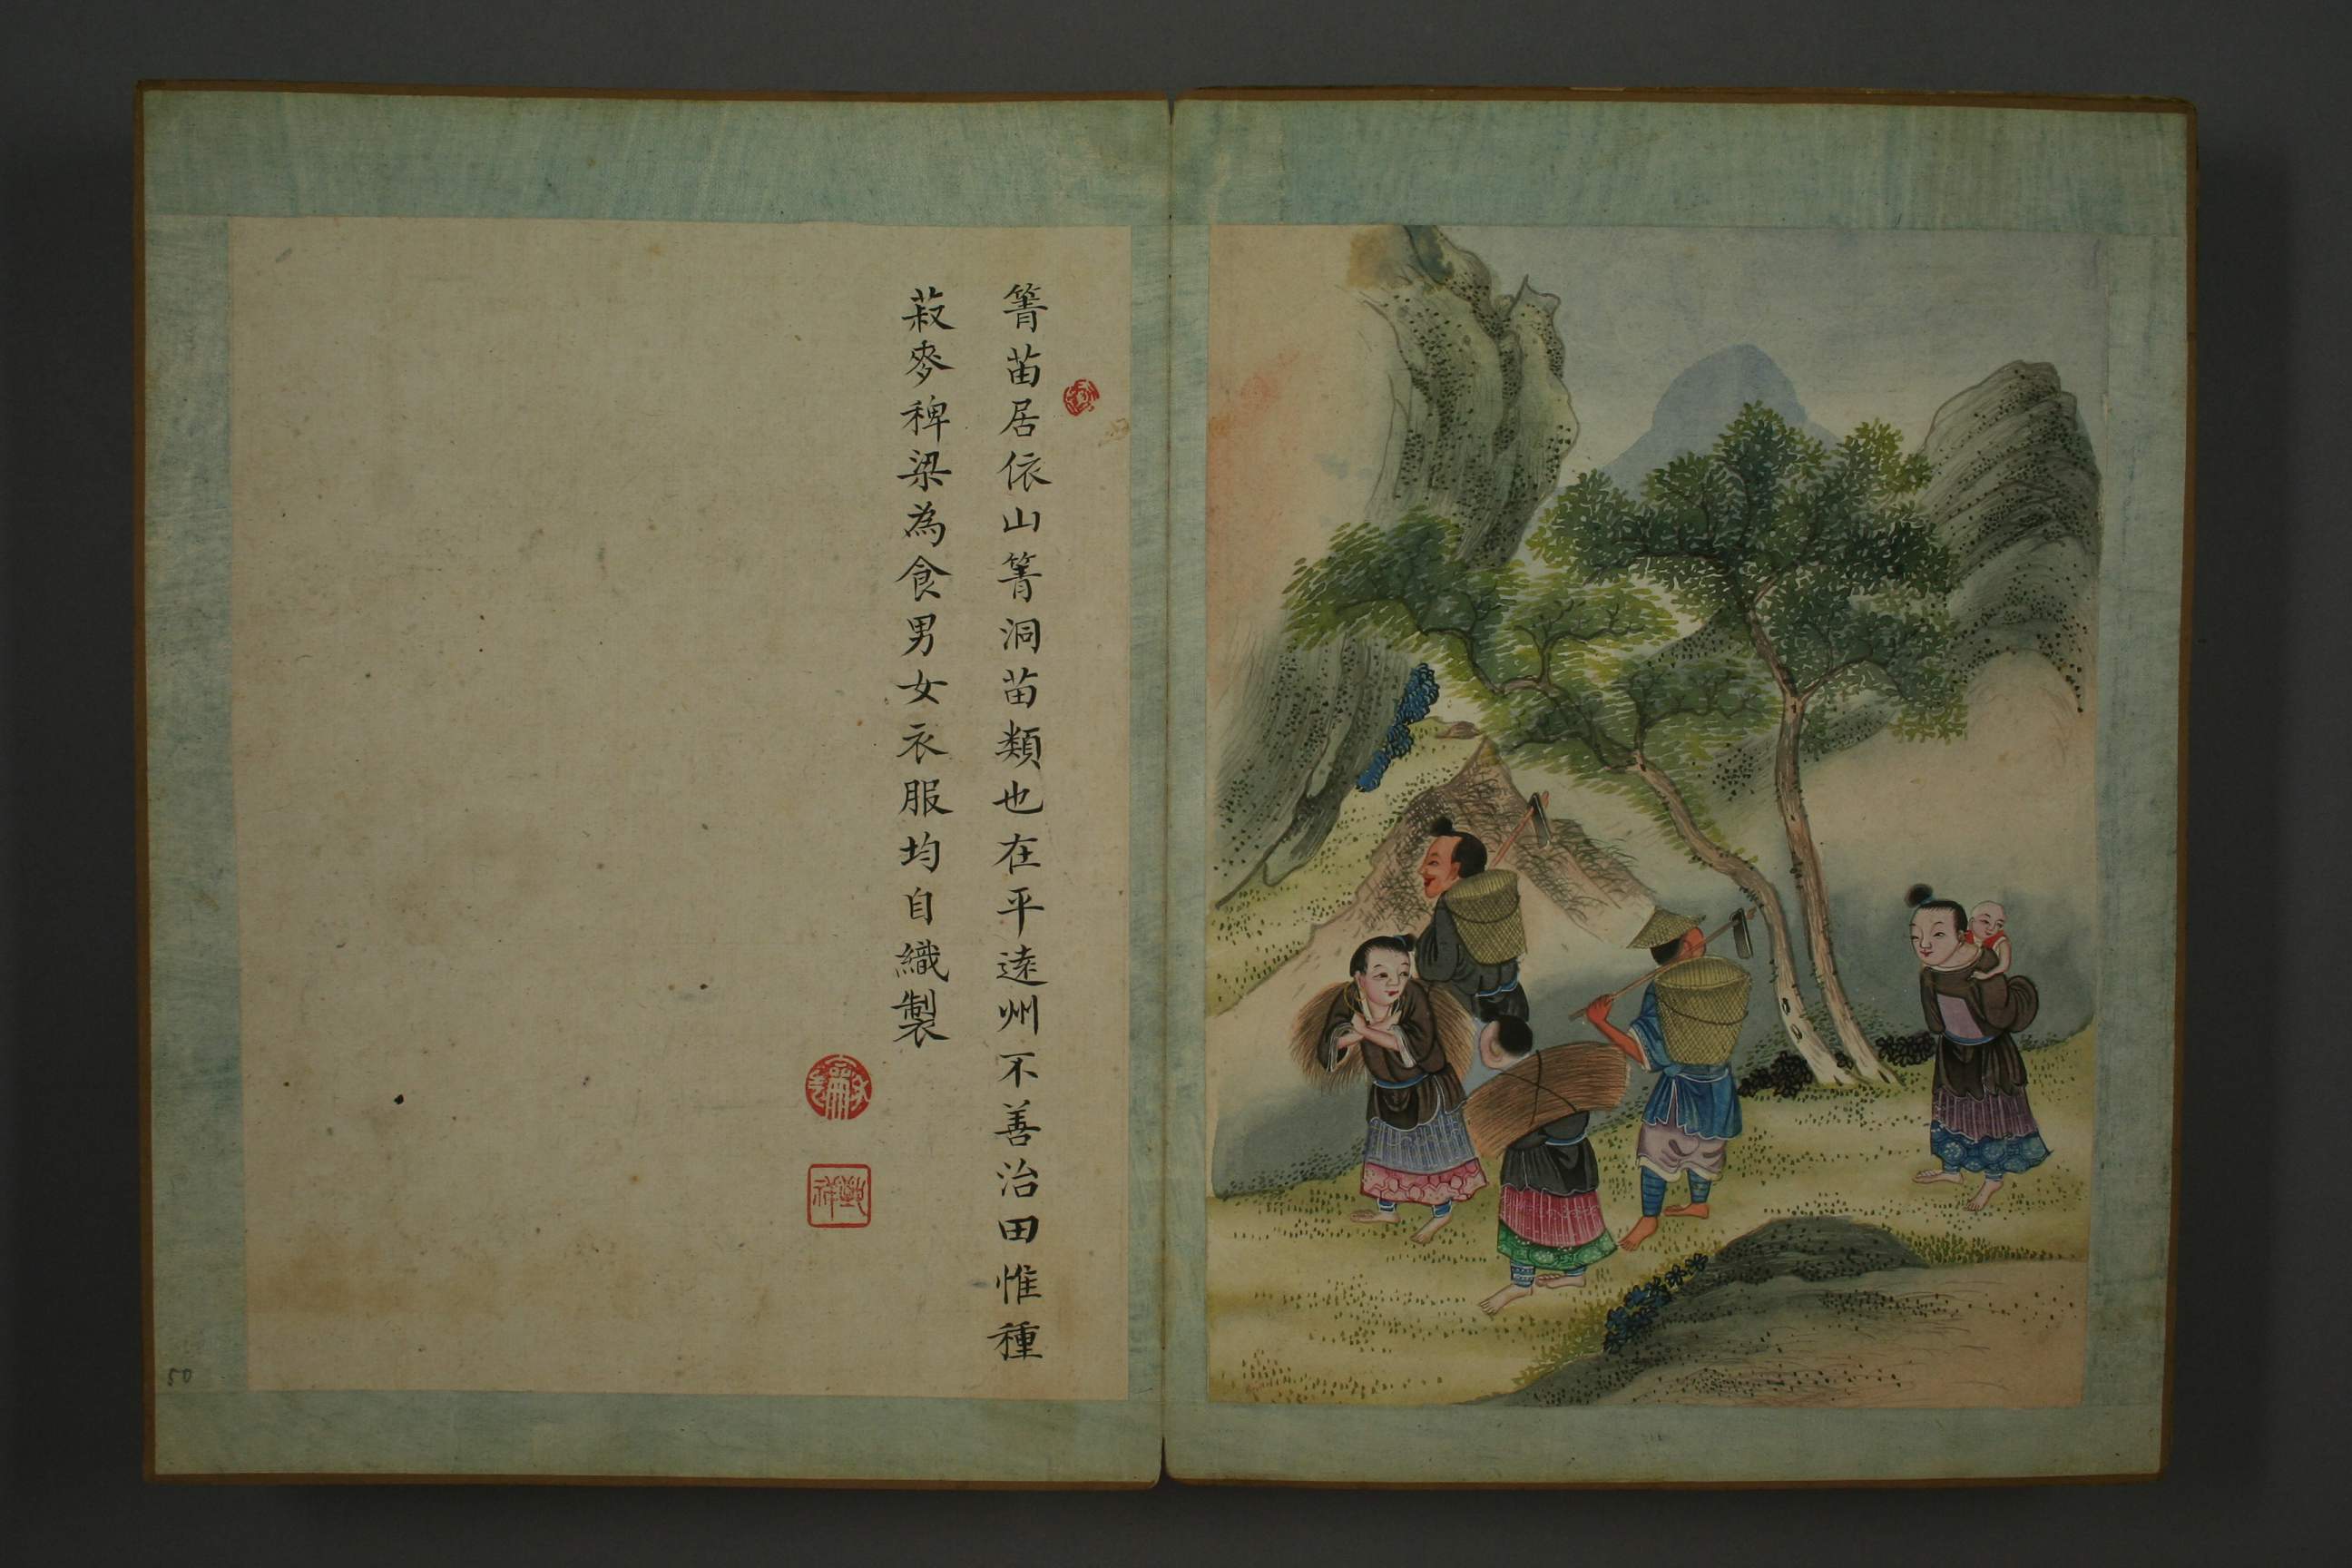 箐苗居依山箐洞苗類也在平遠州不善治田惟種
菽麥稗梁為食男女衣服均自織製
50